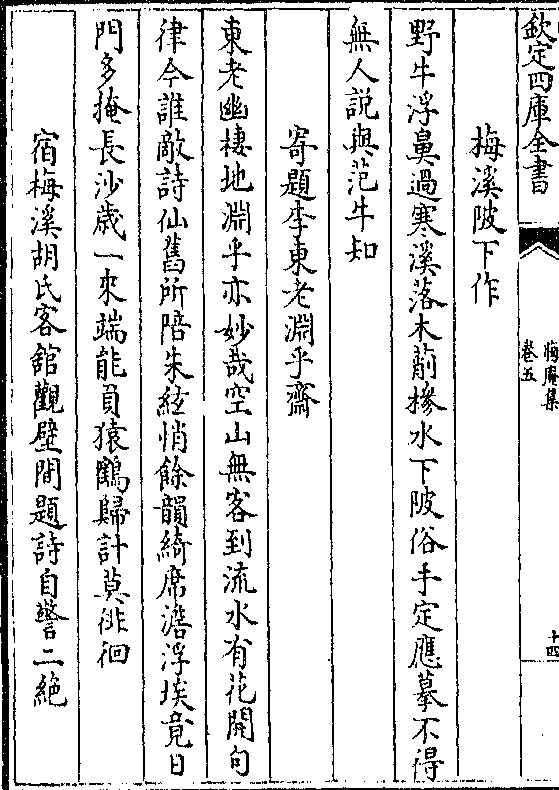 欽定四庫全書
晦庵集
卷五
十四
梅溪陂下作
野牛浮鼻過寒溪落木蕭槮水下陂俗手定應摹不得
無人說與范牛知
寄題李東老淵乎齋
東老幽棲地淵乎亦妙哉空山無客到流水有花開句
律今誰敵詩仙舊所陪朱絃悄餘韻綺席澹浮埃竟日
門多掩長沙歳一來端能負猿鶴歸計莫徘徊
宿梅溪胡氏客舘觀壁間題詩自警二絶